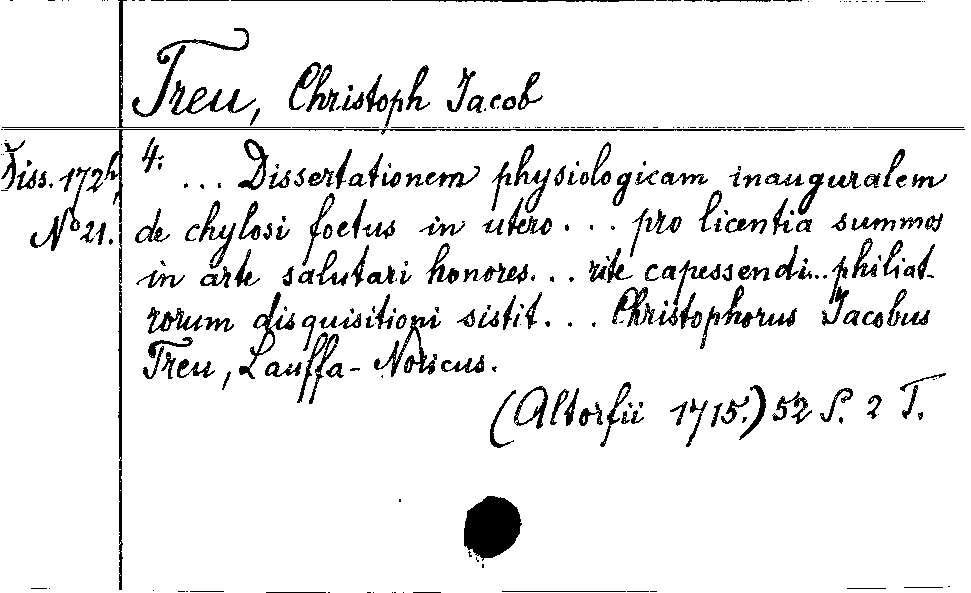 Treu, Christoph Jacob
Diss. 172h,
No 21.
4:
... Dissertationem physiologicam inauguralem
de chylosi foetus in utero ... pro licentia summos
in arte salutari honores... rite capessendi... philiat-
rorum disquisitioni sistit... Christophorus Jacobus
Treu, Lauffa-Noricus.
(Altorfii 1715.) 52 S. 2 T.